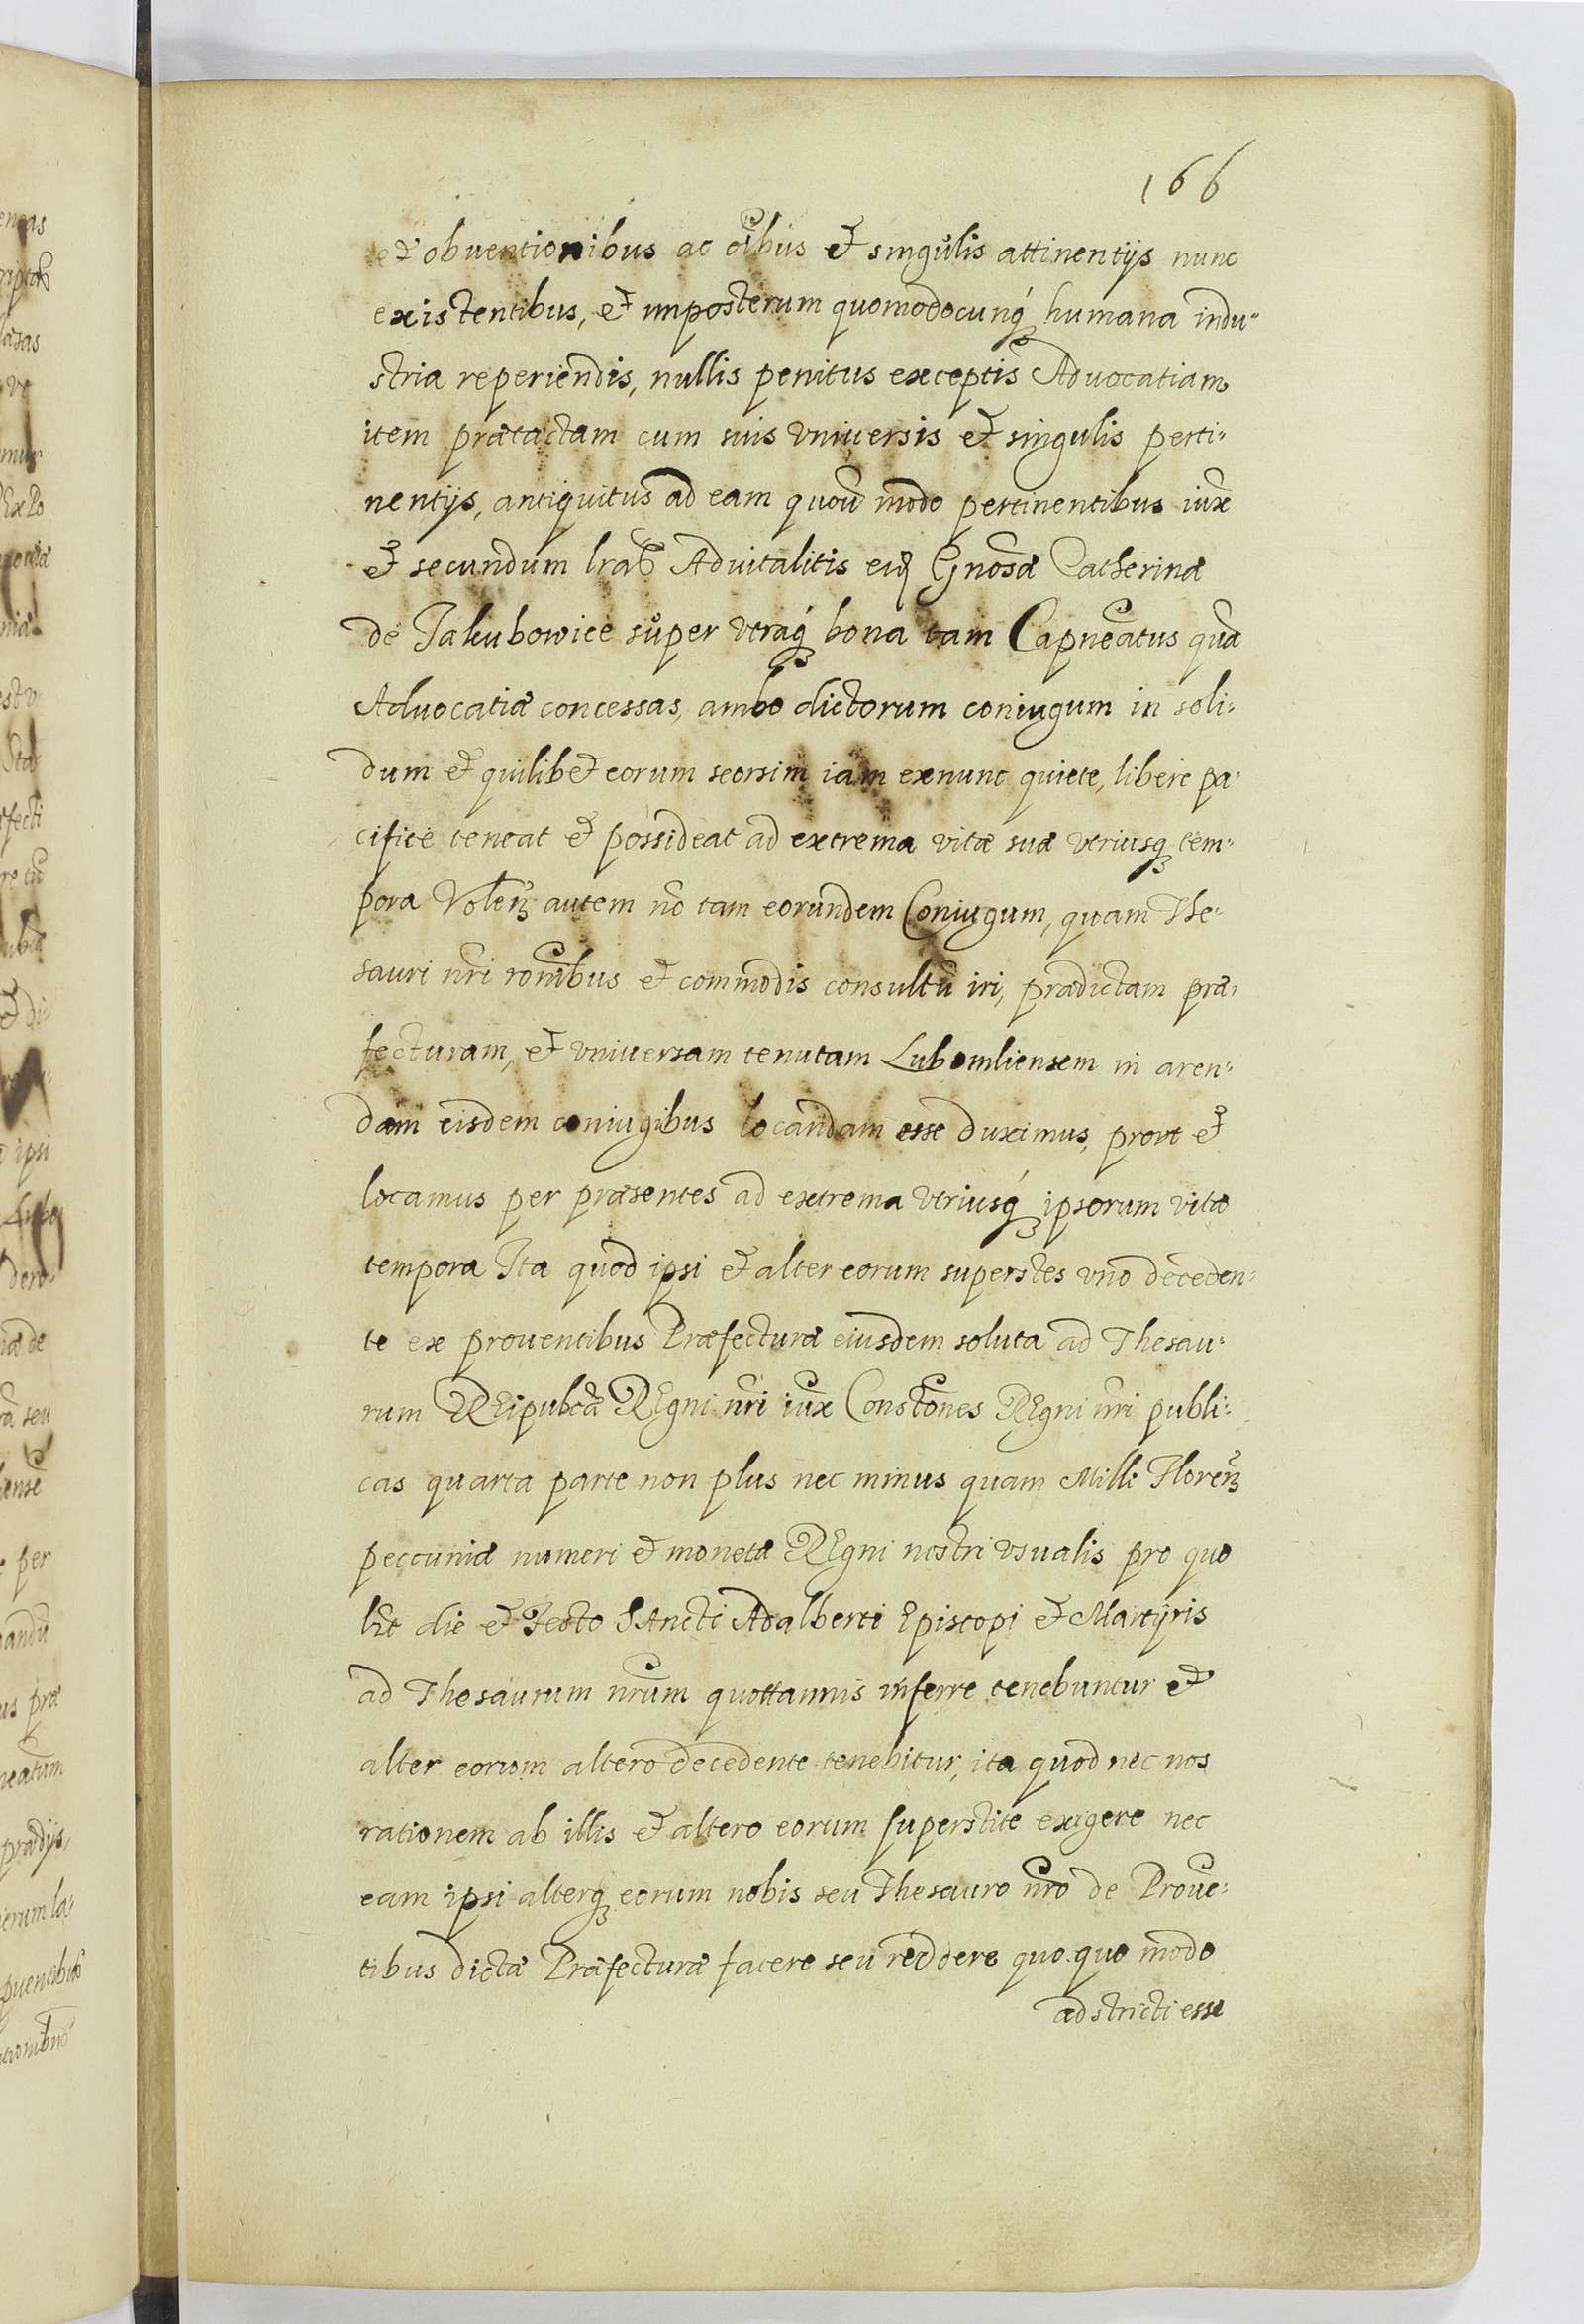 166
et obuentionibus ac oibus et singulis attinentijs nunc
existentibus, et imposterum quomodocunq́ humana indu-
stria reperiendis, nullis penitus exceptis Aduocatiam
item prætactam cum suis vniuersis et singulis perti-
nentijs, antiquitus ad eam quouis modo pertinentibus iux
et secundum lras Aduitalitis eiq Gnosæ Catherinæ
de Jakubowice super vtraq́ bona tam Capneatus qua
Aduocatiæ concessas, ambo dictorum coniugum in soli-
dum et quilibet eorum seorsim iam exnunc quiete, libere pa-
cifice teneat et possideat ad extrema vitæ suæ vtriusq tem-
pora Volen autem no tam eorundem Coniugum, quam The-
sauri nri ronibus et commodis consultu iri, prædictam præ-
fecturam, et vniuersam tenutam Lubomliensem in aren-
dam eisdem coniugibus locandam esse duximus, prout et
locamus per præsentes ad extrema vtriusq́ ipsorum vitæ
tempora Ita quod ipsi et alter eorum superstes vno deceden-
te ex prouentibus Præfecturæ eiusdem soluta ad Thesau-
rum REipubcæ REgni nri iux Constones REgni nri publi-
cas quarta parte non plus nec minus quam Mille Floren
peccuniæ numeri et monetæ REgni nostri vsualis pro quo
lbt die et Festo SAncti Adalberti Episcopi et Martÿris
ad Thesaurum nrum quottannis inferre tenebuntur et
alter eorum altero decedente tenebitur, ita quod nec nos
rationem ab illis et altero eorum superstite exigere nec
eam ipsi alterq eorum nobis seu Thesauro nro de Proue-
tibus dictæ Præfecturæ facere seu reddere quo quo modo
adstricti esse